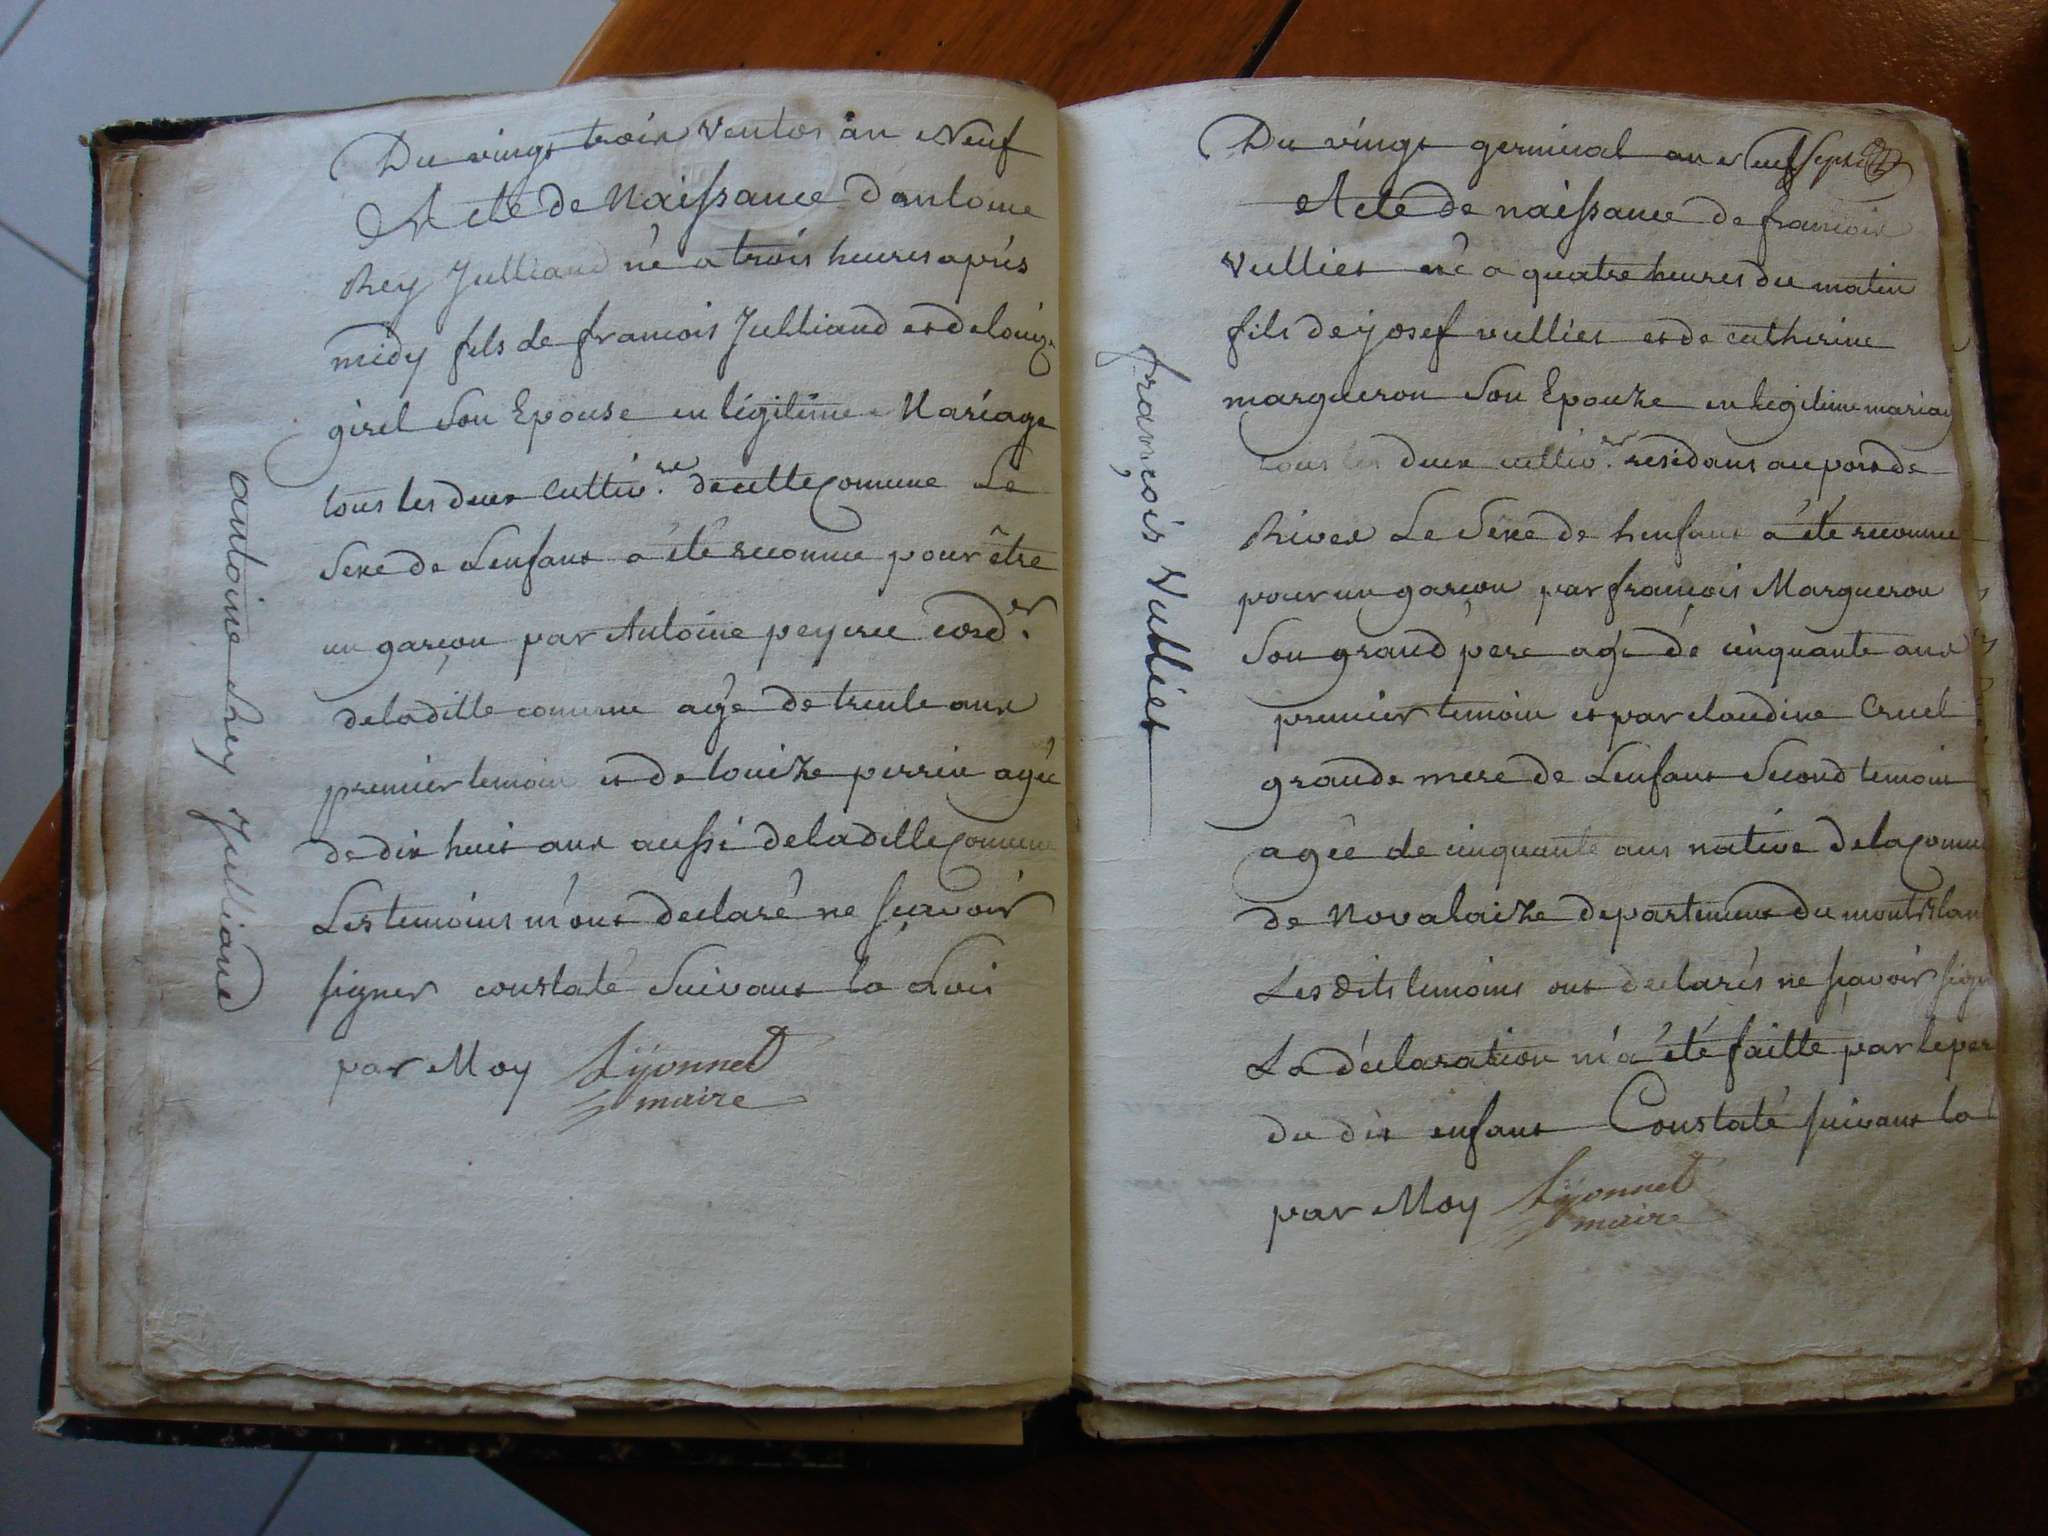 antoine Rey Julliand
Du vingt trois Ventos an Neuf
Acte de Naissance dantoine
Rey Julliand né a trois heures après
midy fils de francois Julliand et de louize
girel Son Epouse en légitime Mariage
tous les deux Cultiv.rs de cette Comune Le
Sexe de Lenfant a été reconnu pour être
un garçon par Antoine peyree cord.er
de la ditte comune agé de trente ans
premier temoin et de louize perrin agée
de dix huit ans aussi de la ditte Comune
Les temoins m'ont declaré ne sçavoir
signer constaté Suivant la Loi
par Moy Lyonnet
maire
françois Vulliet
Du vingt germinal an Neuf Sept
Acte de naissance de francois
Vulliet né a quatre heures du matin
fils de josef vulliet et de catherine
margueron Son Epouze en legitime mariag
tous les deux cultiv.rs residans au port de
Rives Le Sexe de henfant a été reconnu
pour un garçon par françois Margueron
Son grand pere agé de cinquante ans
premier temoin et par claudine Cruel
grande mere de Lenfant Second temoin
agée de cinquante ans native de la Comune
de Novalaize departement du montblan
Les dits temoins ont declarés ne sçavoir sign
La déclaration m'a été faitte par le per
du dit enfant Constaté suivant la l
par Moy Lyonnet
maire